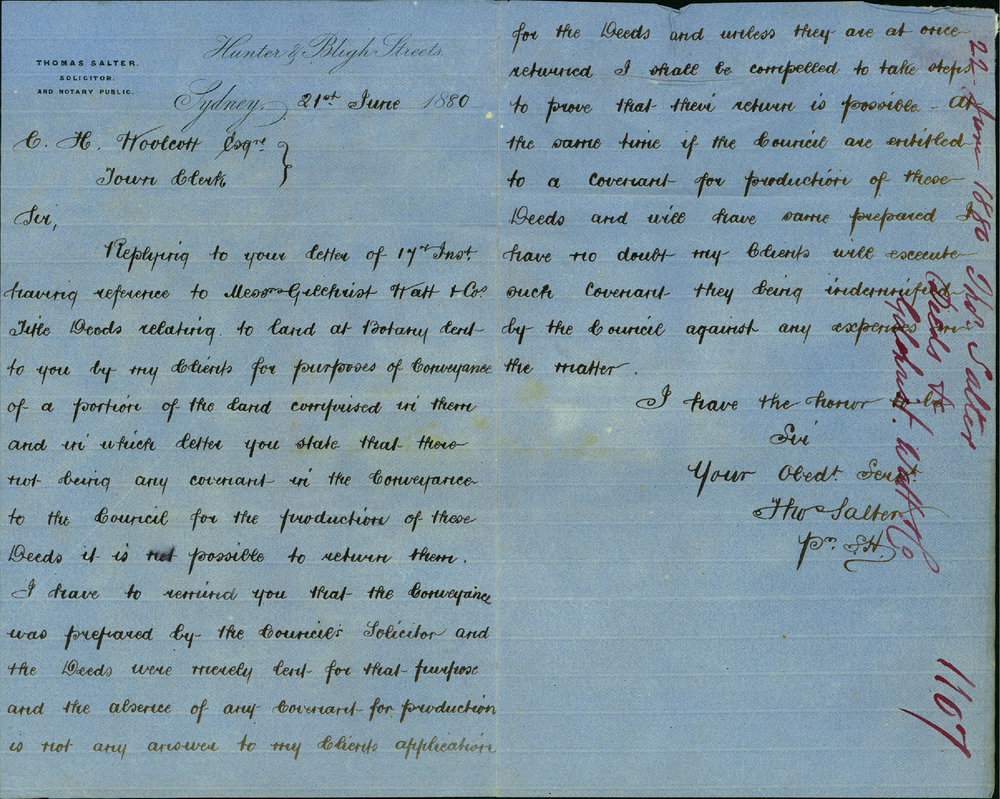 THOMAS SALTER.
SOLICITOR.
AND NOTARY PUBLIC.
Hunter & Bligh Streets.
Sydney, 21st June 1880
C. H. Woolcott Esqre
Town Clerk
Sir,
Replying to your letter of 17th Inst.
having reference to Messrs Gilchrist Watt & Co.
Title Deeds relating to land at Botany lent
to you by my Clients for purposes of Conveyance
of a portion of the land comprised in them
and in which letter you state that there
not being any covenant in the Conveyance
to the Council for the production of these
Deeds it is not possible to return them.
I have to remind you that the Conveyance
was prepared by the Council's Solicitor and
the Deeds were merely lent for that purpose
and the absence of any Covenant for production
is not any answer to my Clients application
for the Deeds and unless they are at once
returned I shall be compelled to take steps
to prove that their return is possible - At
the same time if the Council are entitled
to a covenant for production of these
Deeds and will have same prepared I
have no doubt my Clients will execute
such Covenant they being indemnified
by the Council against any expenses in
the matter.
I have the honor to be
Sir
Your Obedt. Servt.
Thos Salter
pr S.H.
22 June 1880 Thos Salter
Deeds &
Gilchrist. Watt & Co
1107